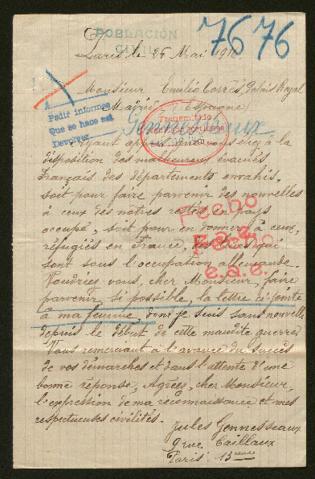 POBLACIÓN
CIVIL
7676
Paris le 25 Mai 191
Monsieur Emilio Palais Royal
Madrid Espagne
A
Pedir informes
Que se hace así
Devolver
Gennesseaux
Ayant appris que vous êtes à la
disposition des malheureux évacués
français des départements envahis,
soit pour faire parvenir des nouvelles
à ceux des nôtres restés en pays
occupé, soit pour en donner à ceux,
réfugiés en France,
sont sous l'occupation allemande.
Fecho
e.a.e.
Fecho
e.a.e.
Voudriez vous, cher Monsieur, faire
parvenir, si possible, la lettre ci-jointe
à ma femme, dont je suis sans nouvelle
depuis le début de cette maudite guerre.
Vous remerciant à l'avance du succès
de vos démarches et dans l'attente d'une
bonne réponse, Agréez, cher Monsieur,
l'expression de ma reconnaissance et mes
respectueuses civilités.
Jules Gennesseaux
9 rue Caillaux
Paris 13eme